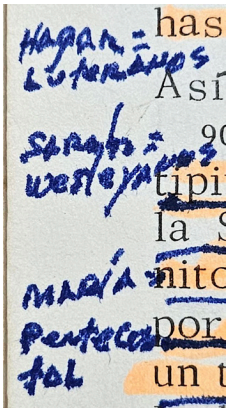 Hagar =
Luteranos
Sarah =
Wesleyanos
María =
Pentecos
tal
has
Así
90
tipi
la S
nito
por
un t